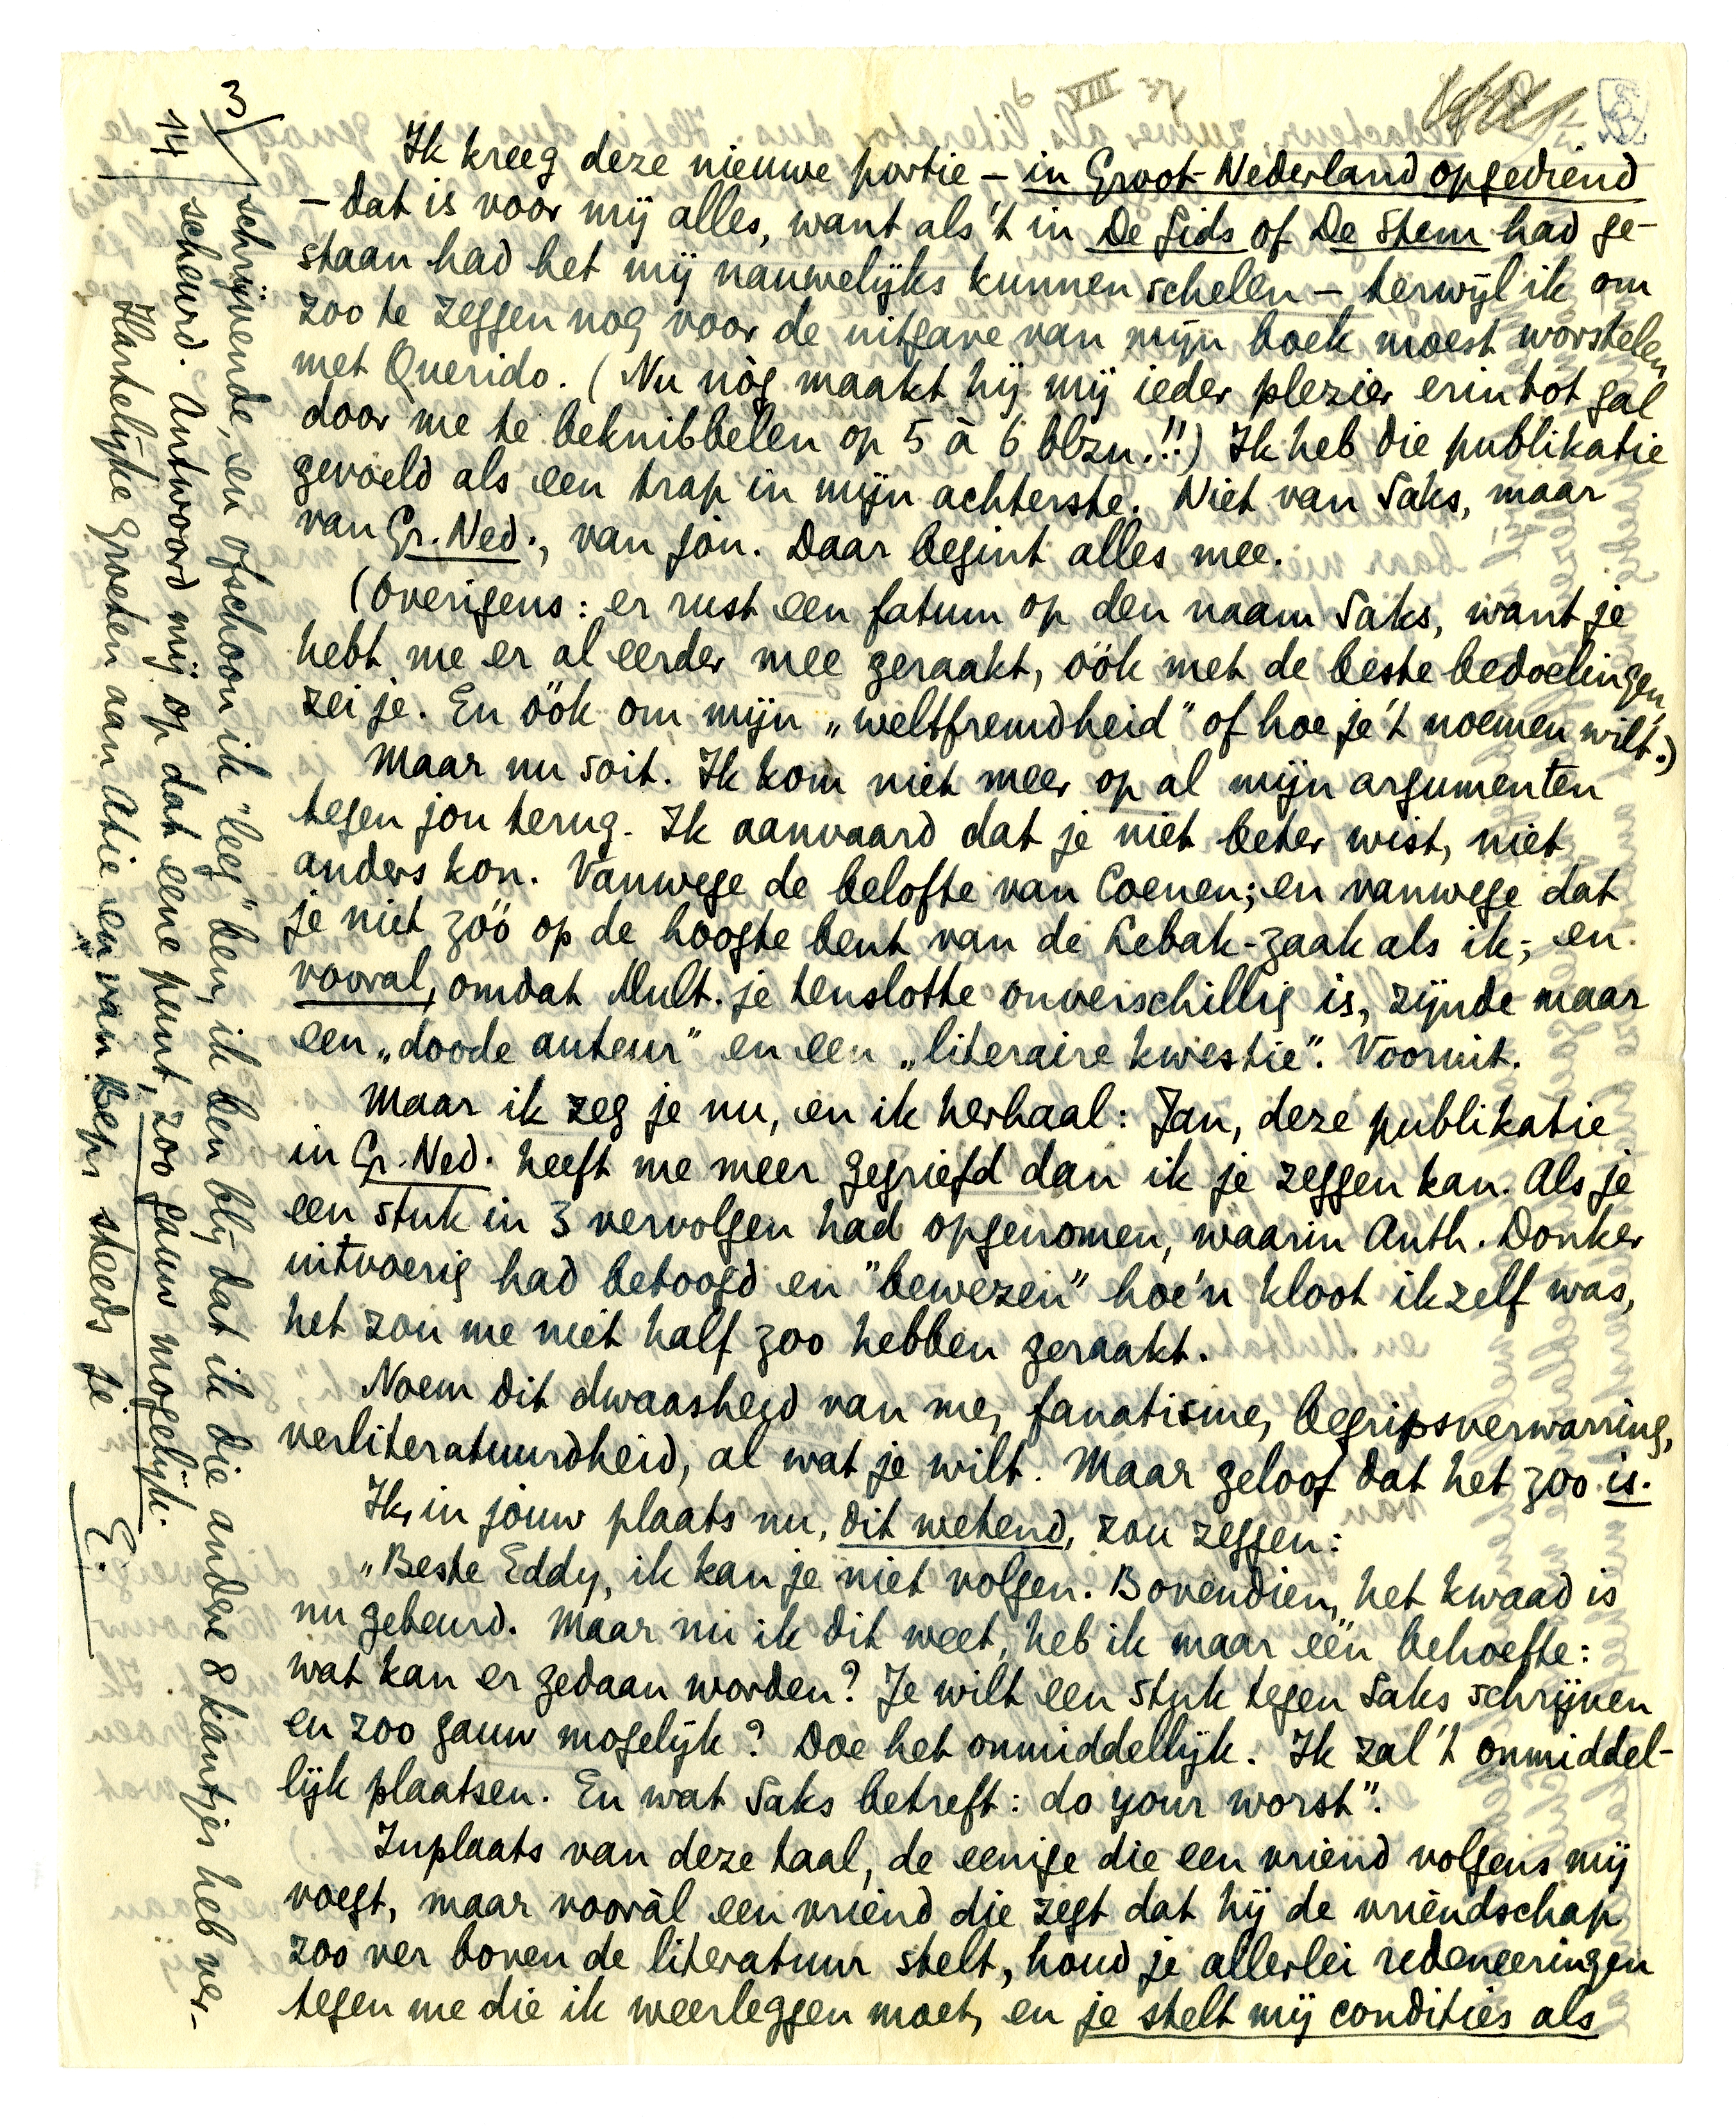 Ik kreeg deze nieuwe portie – in Groot-Nederland opgediend
– dat is voor mij alles, want als 't in De Gids of De Stem had ge-
staan had het mij nauwelijks kunnen schelen – terwijl ik om
zoo te zeggen nog voor de uitgave van mijn boek moest worstelen
met Querido. (Nu nòg maakt hij mij ieder plezier erin tot gal
door me te beknibbelen op 5 à 6 blzn.!!) Ik heb die publikatie
gevoeld als een trap in mijn achterste. Niet van Saks, maar
van Gr. Ned., van jóú. Daar begint alles mee.
(Overigens: er rust een fatum op den naam Saks, want je
hebt me er al eerder mee geraakt, óók met de beste bedoelingen,
zei je. En óók om mijn „weltfremdheid" of hoe je 't noemen wilt.)
Maar nu soit. Ik kom niet meer op al mijn argumenten
tegen jou terug. Ik aanvaard dat je niet beter wist, niet
anders kon. Vanwege de belofte van Coenen; en vanwege dat
je niet zóó op de hoogte bent van de Lebak-zaak als ik; en
vooral, omdat Mult. je tenslotte onverschillig is, zijnde maar
een „doode auteur" en een „literaire kwestie". Vooruit.
Maar ik zeg je nu, en ik herhaal: Jan, deze publikatie
in Gr. Ned. heeft me meer gegriefd dan ik je zeggen kan. Als je
een stuk in 3 vervolgen had opgenomen, waarin Anth. Donker
uitvoerig had betoogd en "bewezen" hoe'n kloot ikzelf was,
het zou me niet half zoo hebben geraakt.
Noem dit dwaasheid van me, fanatisme, begripsverwarring,
verliteratuurdheid, al wat je wilt. Maar geloof dat het zoo is.
Ik, in jouw plaats nu, dit wetend, zou zeggen:
„Beste Eddy, ik kan je niet volgen. Bovendien, het kwaad is
nu gebeurd. Maar nu ik dit weet, heb ik maar één behoefte:
wat kan er gedaan worden? Je wilt een stuk tegen Saks schrijven
en zoo gauw mogelijk? Doe het onmiddellijk. Ik zal 't onmiddel-
lijk plaatsen. En wat Saks betreft: do your worst".
Inplaats van deze taal, de eenige die een vriend volgens mij
voegt, maar vooràl een vriend die zegt dat hij de vriendschap
zoo ver boven de literatuur stelt, houd je allerlei redeneeringen
tegen me die ik weerleggen moet, en je stelt mij condities als
3/ schrijvende, en ofschoon ik "leeg" ben, ik ben blij dat ik die andere 8 kantjes heb ver-
14/ scheurd. Antwoord mij op dat eene punt, zoo gauw mogelijk.
Hartelijke groeten aan Atie en van Beps steeds je
E.